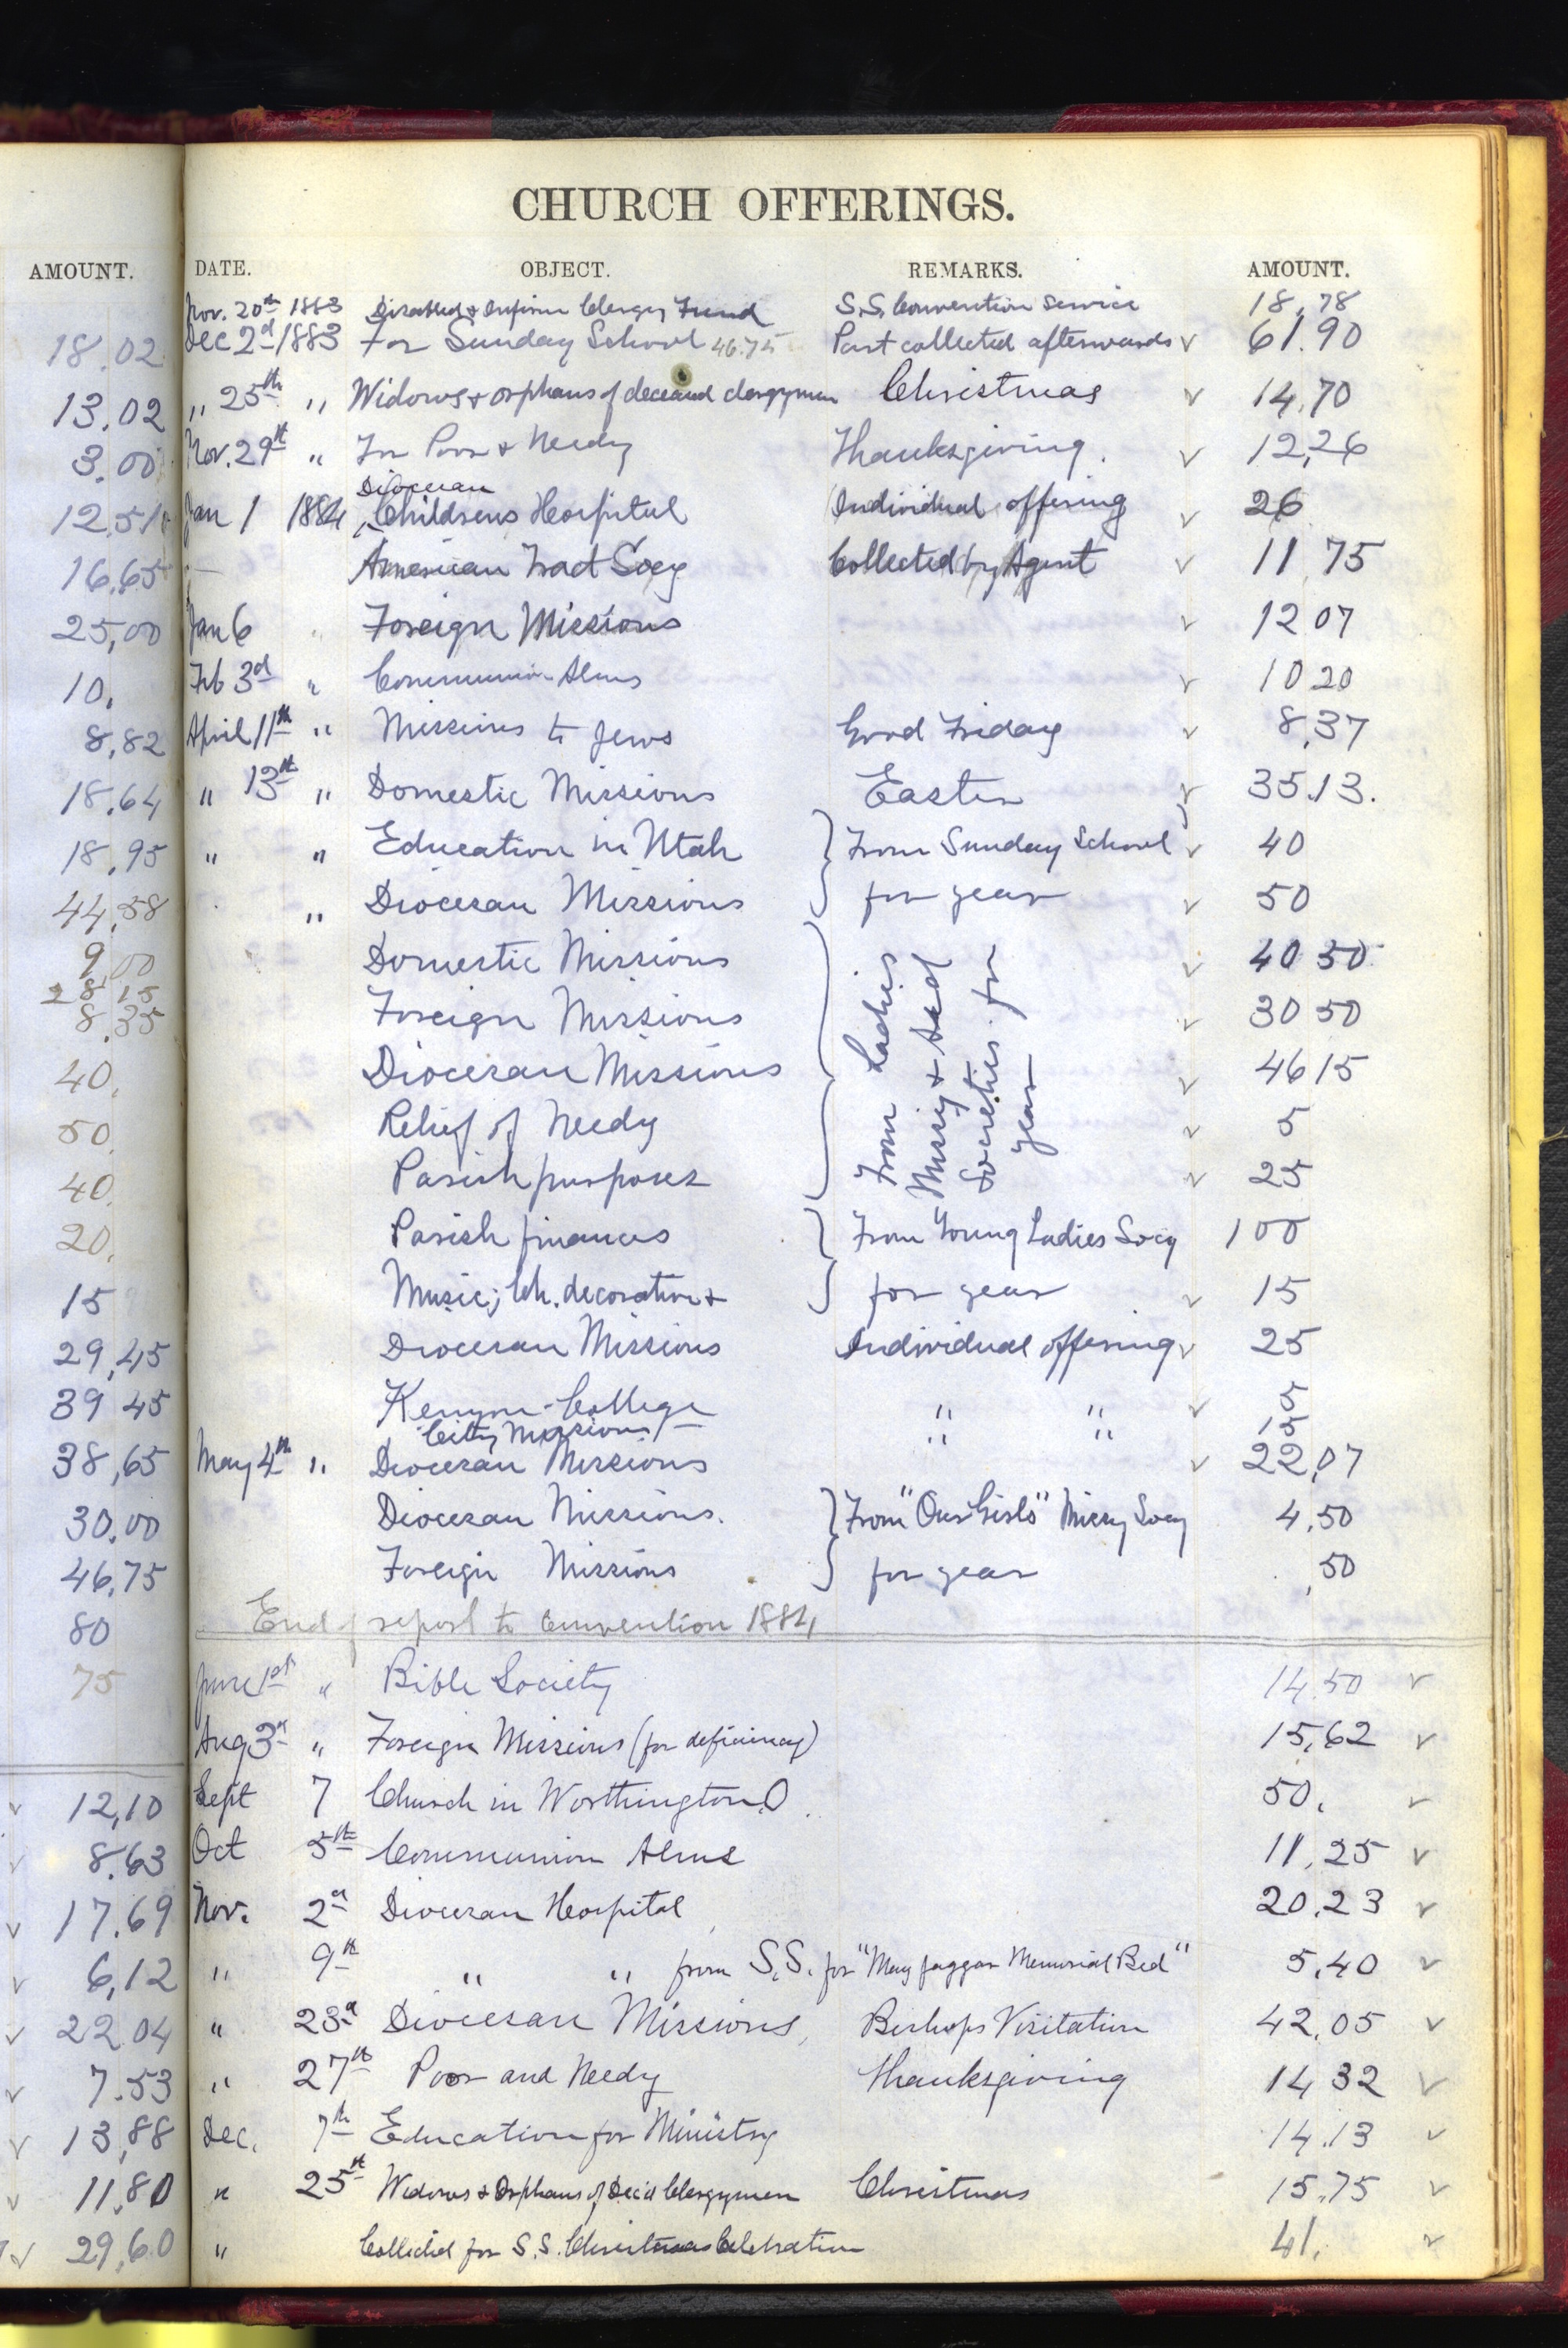 CHURCH OFFERINGS.
AMOUNT. DATE. OBJECT. REMARKS. AMOUNT.
Nov. 20th 1883 Disabled & Infirm Clergy Fund S.S. Convention Service 18,78
18.02 Dec 2d 1883 For Sunday School 46.75 Part collected afterwards √ 61.90
13.02 " 25th " Widows & orphans of deceased clergymen Christmas √ 14.70
3.00 Nov. 29th " For Poor & Needy Thanksgiving. √ 12,26
Diocesan
12.51 Jan 1 1884 ^Childrens Hospital Individual offering √ 26
16.65 — American Tract Socy Collected by Agent √ 11 75
25,00 Jan 6 " Foreign Missions √ 12 07
10, Feb 3d " Communion Alms √ 10 20
8,82 April 11th " Missions to Jews Good Friday √ 8,37
18.64 " 13th " Domestic Missions Easter √ 35.13.
18,95 " " Education in Utah } From Sunday School √ 40
44,58 " Diocesan Missions for year √ 50
9,00 Domestic Missions } From Ladies √ 40 50
28 15
8.35 Foreign Missions Missy & Aid √ 30 50
40, Diocesan Missions Societies for √ 46 15
50, Relief of Needy year √ 5
40, Parish purposes √ 25
20, Parish finances } From Young Ladies Socy 100
15 Music, Ch. decoration & for year √ 15
29,45 Diocesan Missions Individual offering √ 25
39 45 Kenyon College " " √ 5
City Missions " " 15
38,65 May 4th " Diocesan Missions √ 22,07
30.00 Diocesan Missions. } From "Our Girls" Missy Socy 4,50
46,75 Foreign Missions for year ,50
80 End of report to Convention 1884
75 June 1st " Bible Society 14.50 √
Aug 3d " Foreign Missions (for deficiency) 15,62 √
√ 12,10 Sept 7 Church in Worthington, O. 50, √
√ 8.63 Oct 5th Communion Alms 11,25 √
√ 17.69 Nov. 2d Diocesan Hospital 20,23 √
√ 6,12 " 9th " " from S.S. for "May Jaggar Memorial Bed" 5,40 √
√ 22 04 " 23d Diocesan Missions, Bishops Visitation 42,05 √
√ 7.53 " 27th Poor and Needy Thanksgiving 14 32 √
√ 13,88 Dec. 7th Education for Ministry 14.13 √
√ 11,80 " 25th Widows & Orphans of Dec'd Clergymen Christmas 15,75 √
√ 29,60 " Collected for S.S. Christmas Celebration 41, √